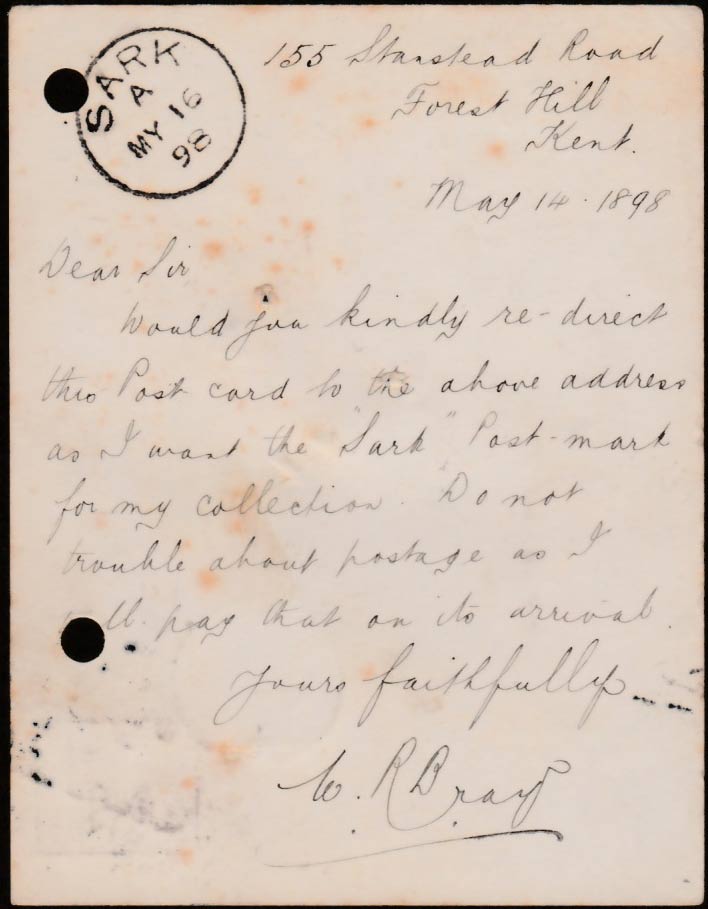 SARK
A
MY 16
98
155 Stanstead Road
Forest Hill
Kent.
May 14. 1898
Dear Sir
Would you kindly re-direct
this Post card to the above address
as I want the "Sark" Post-mark
for my collection. Do not
trouble about postage as I
pay that on its arrival.
Yours faithfully
W. R Bray